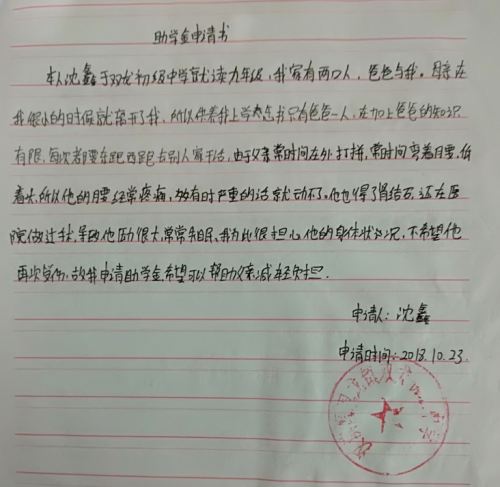 助学金申请书
本人沈鑫于双龙初级中学就读九年级,我家有两口人,爸爸与我。母亲在
我很小的时候就离开了我,所以供养我上学念书只有爸爸一人,在加上爸爸的知识
有限,每次都要东跑西跑去别人家干活,由于父亲常时间在外打拼,常时间弯着腰,低
着头,所以他的腰经常疼痛,如有时严重的话就动不了。他也得了肾结石,还在医
院做过
他
很大,常常
我为此很担心他的身体状况,不希望他
再次复伤,故我申请助学金,希望可以帮助父亲减轻负担.
申请人:沈鑫
申请时间:2018.10.23.